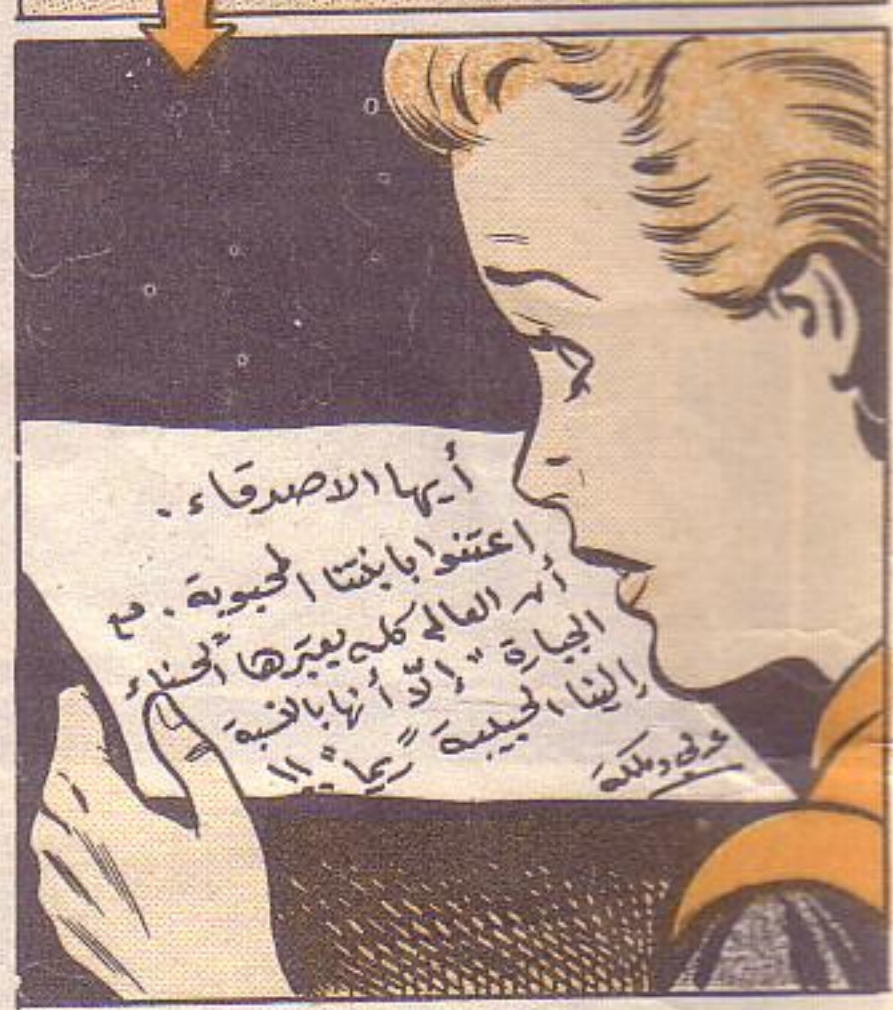 أيها الاصدقاء.
اعتنوا بابنتنا المحبوبة. مع
أن العالم كله يعتبرها "الحسناء
الجبارة" إلّا أنها بالنسبة
إلينا الحبيبة "ريما" !!
عدلي وملكة